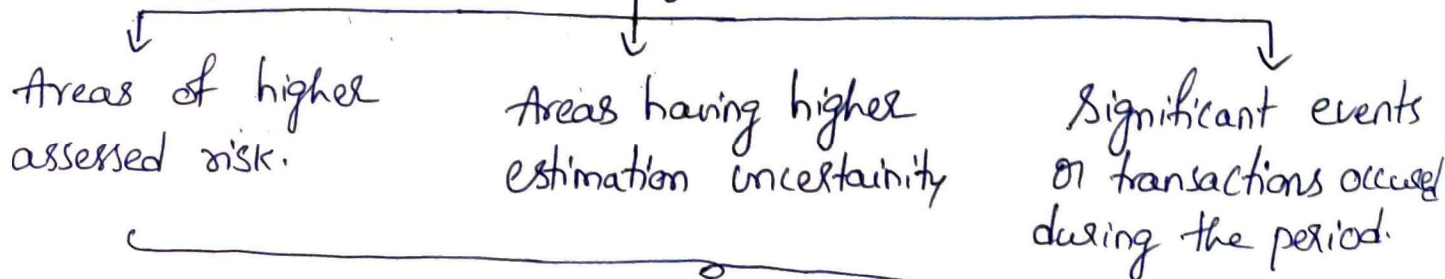 Areas of higher
assessed risk.
Areas having higher
estimation uncertainity
Significant events
or transactions occured
during the period.